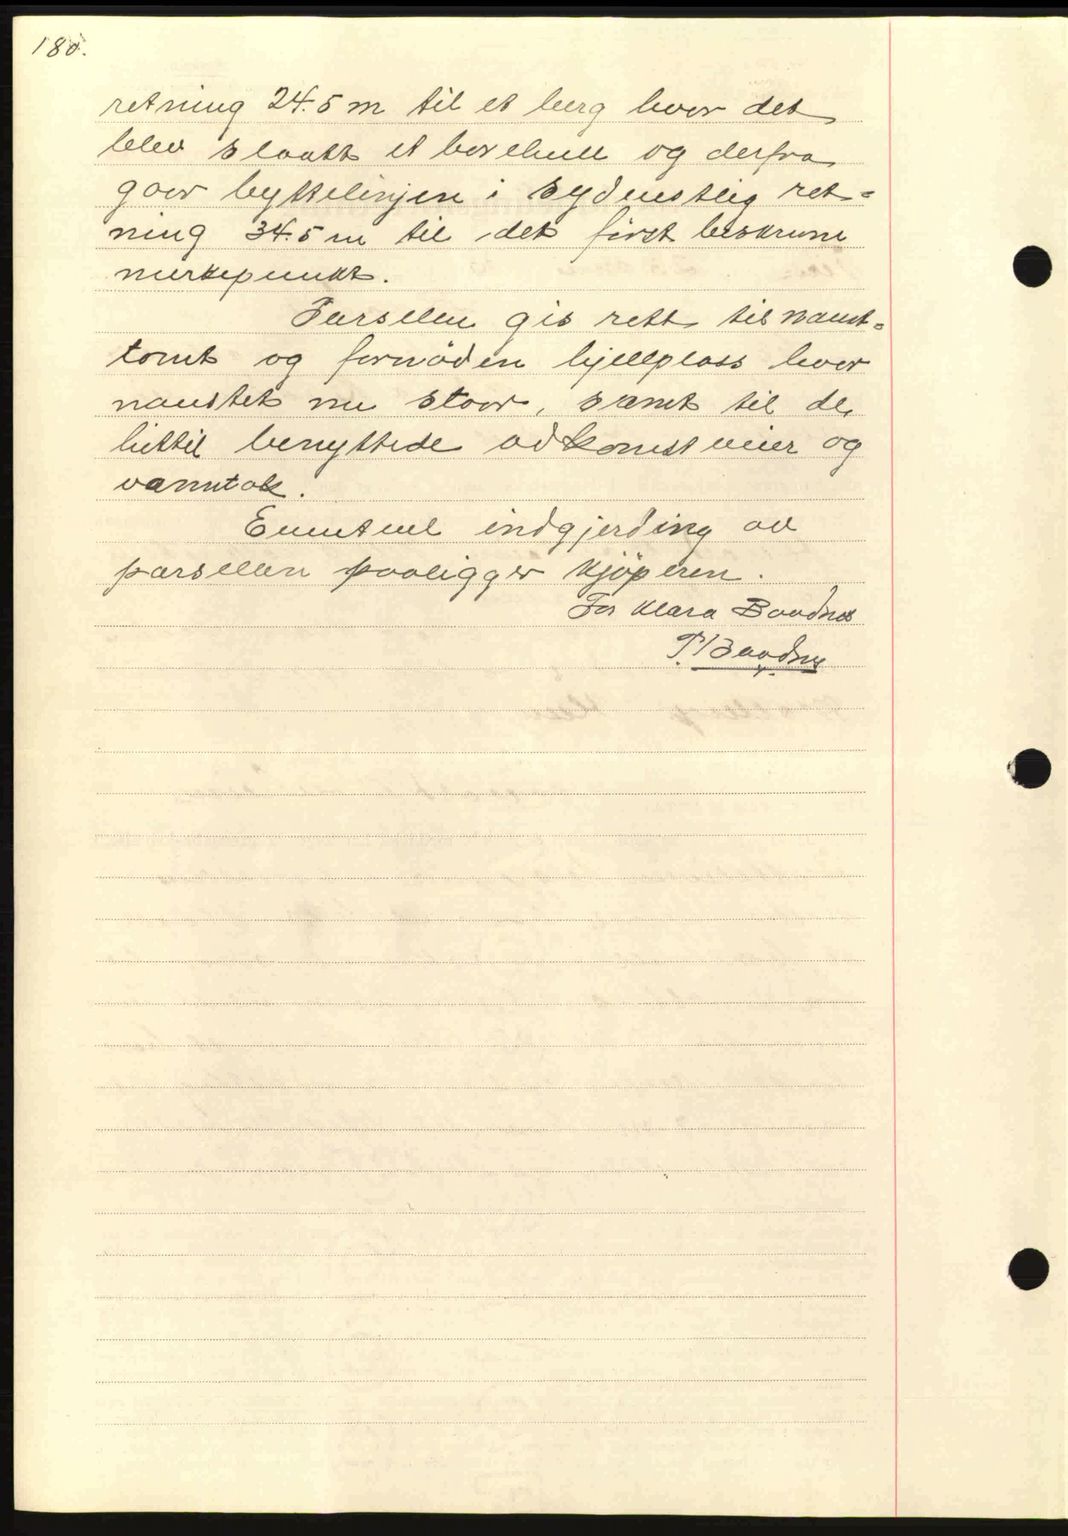 180.
retning 24.5 m til et berg hvor det
blev slaatt et borehull og derfra
gaar byttelinjen i sydøstlig ret-
ning 34.5 m til det først beskrevne
merkepunkt.
Parsellen gis rett til naust-
tomt og fornøden hjellplass hvor
naustet nu staar, samt til de
hittil benyttede adkomstveier og
vanntak.
Eventuel indgjerding av
parsellen paaligger kjøperen.
For Klara Baadnes
P. Baadnes